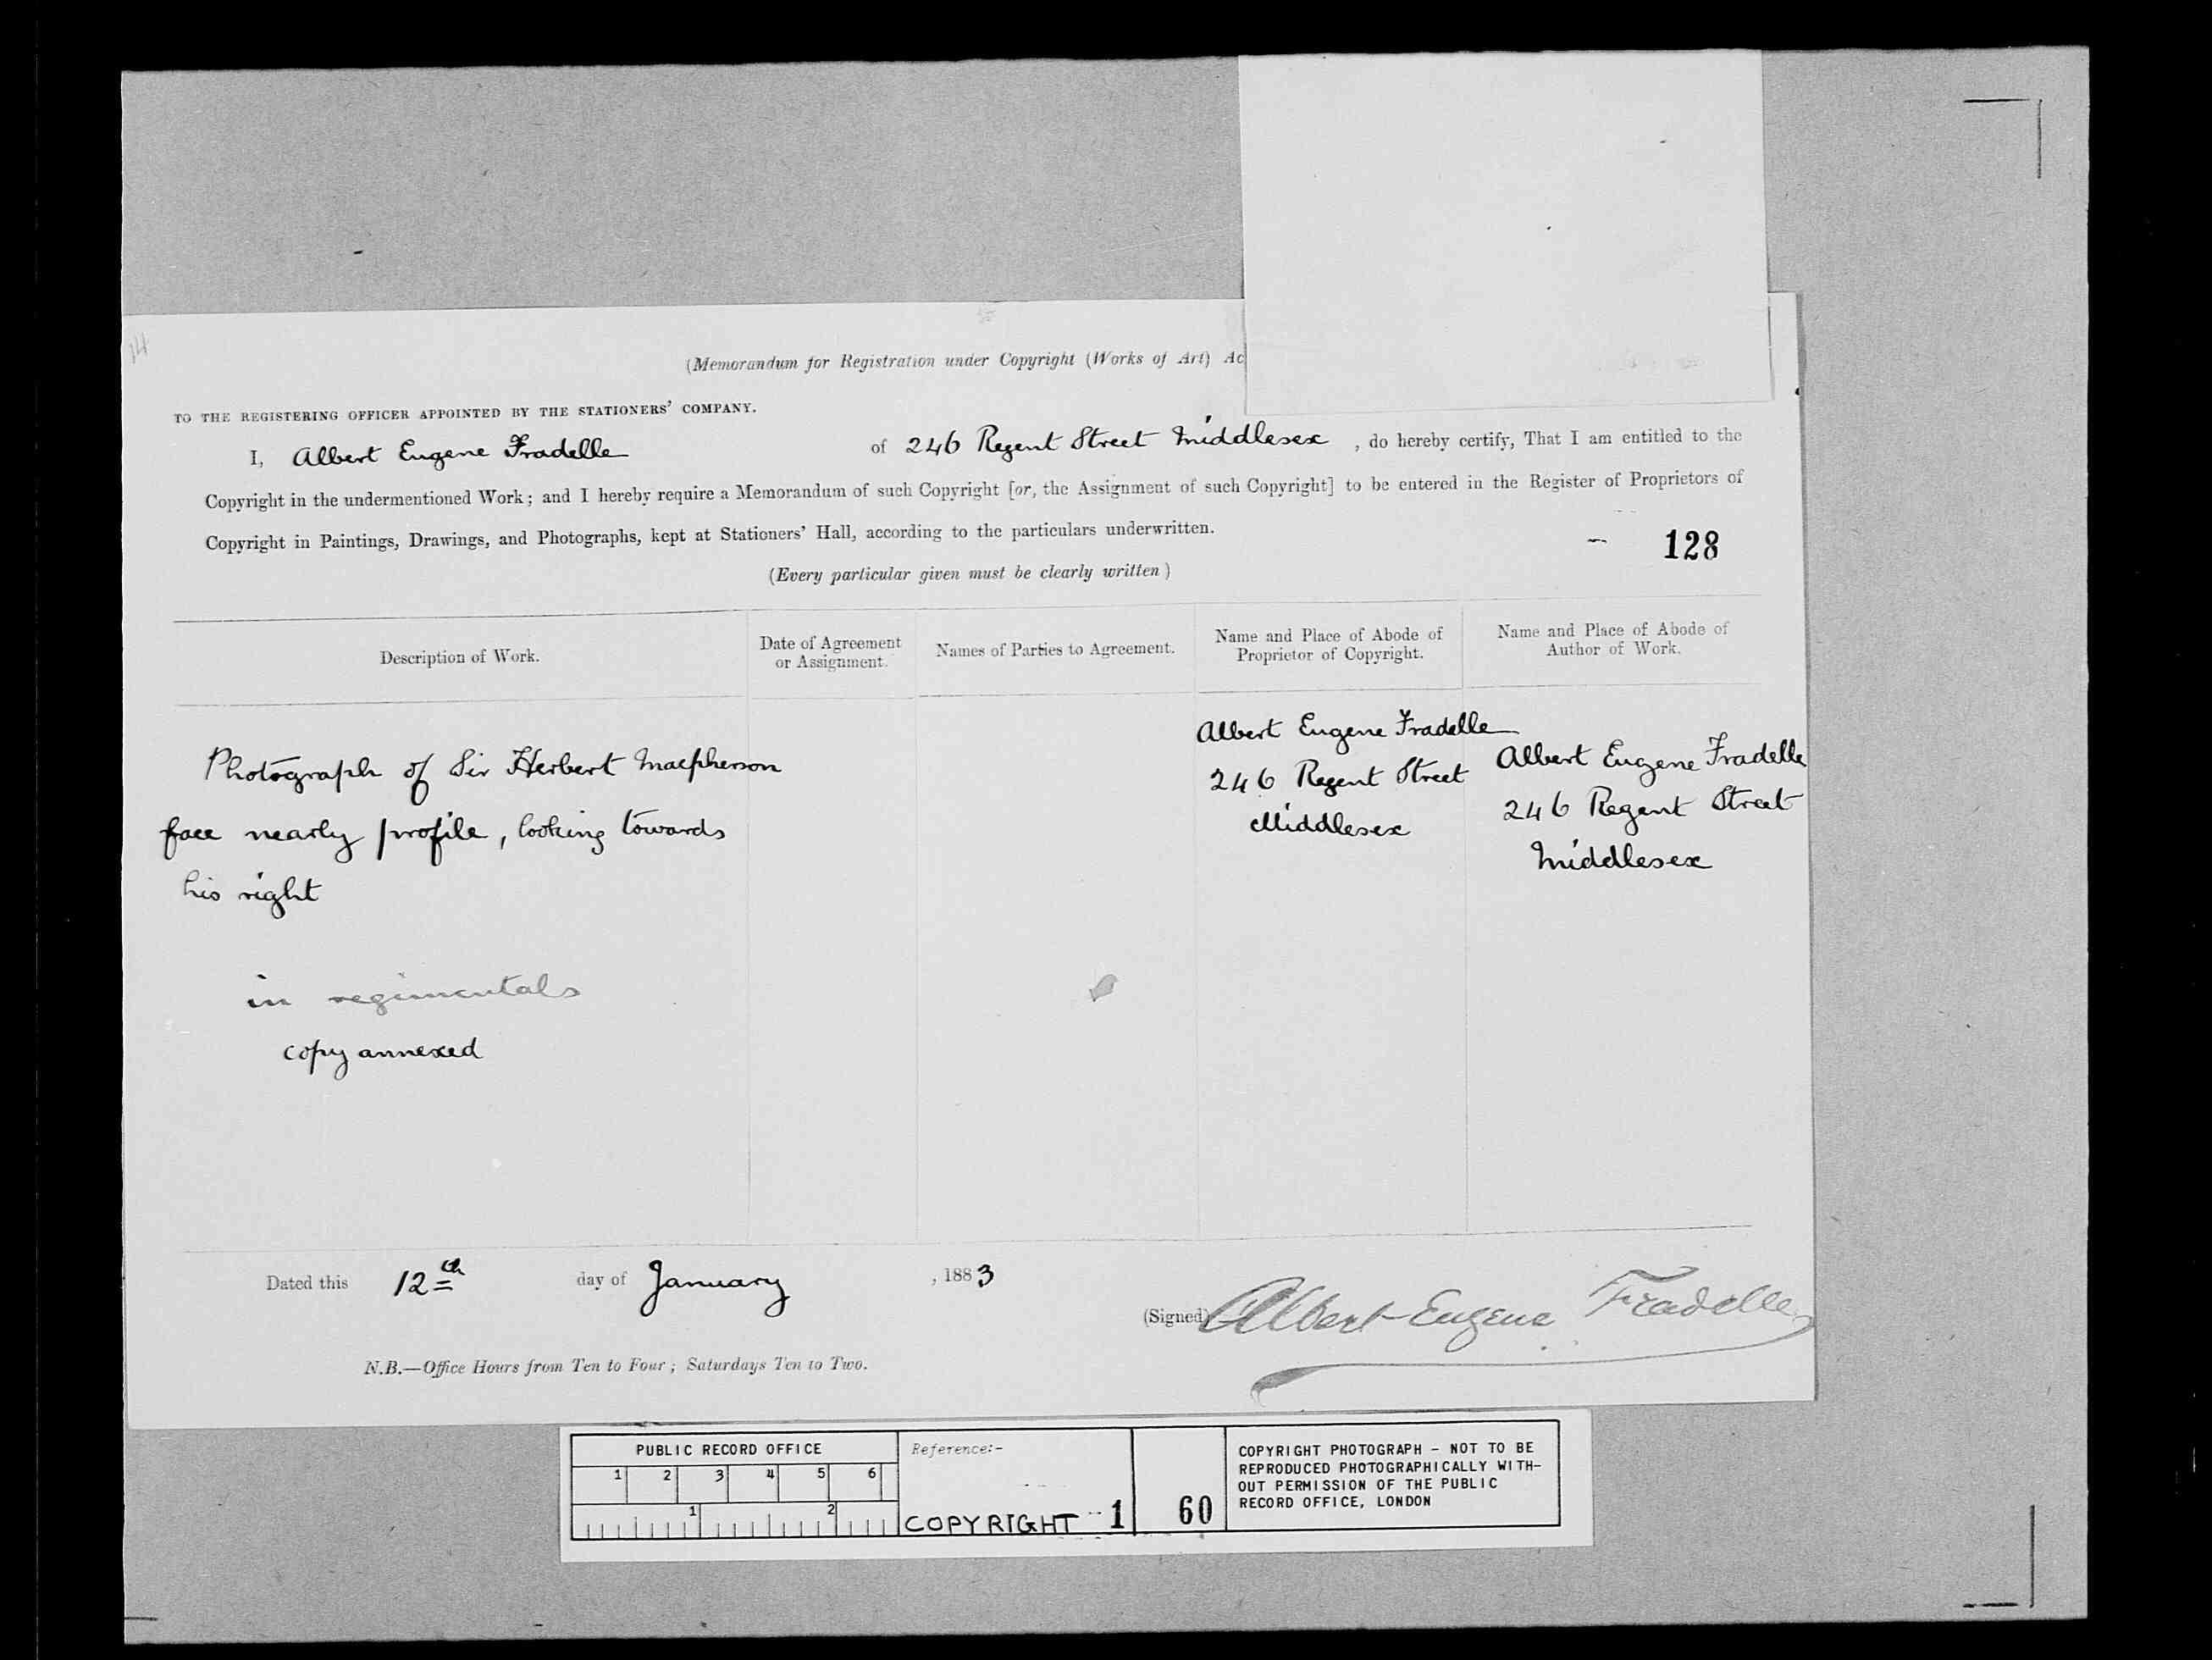 14
(Memorandum for Registration under Copyright (Works of Art) Ac
TO THE REGISTERING OFFICER APPOINTED BY THE STATIONERS' COMPANY.
I, Albert Eugene Fradelle of 246 Regent Street Middlesex, do hereby certify, That I am entitled to the
Copyright in the undermentioned Work; and I hereby require a Memorandum of such Copyright [or, the Assignment of such Copyright] to be entered in the Register of Proprietors of
Copyright in Paintings, Drawings, and Photographs, kept at Stationers' Hall, according to the particulars underwritten.
128
(Every particular given must be clearly written)
Description of Work.
Date of Agreement
or Assignment.
Names of Parties to Agreement.
Name and Place of Abode of
Proprietor of Copyright.
Name and Place of Abode of
Author of Work.
Photograph of Sir Herbert Macpherson
face nearly profile, looking towards
his right
in regimentals
copy annexed
Albert Eugene Fradelle
246 Regent Street
Middlesex
Albert Eugene Fradelle
246 Regent Street
Middlesex
Dated this 12th day of January, 1883
(Signed) Albert Eugene Fradelle
N.B.—Office Hours from Ten to Four; Saturdays Ten to Two.
PUBLIC RECORD OFFICE
1 2 3 4 5 6
1 2
Reference:-
COPYRIGHT 1
60
COPYRIGHT PHOTOGRAPH - NOT TO BE
REPRODUCED PHOTOGRAPHICALLY WITH-
OUT PERMISSION OF THE PUBLIC
RECORD OFFICE, LONDON